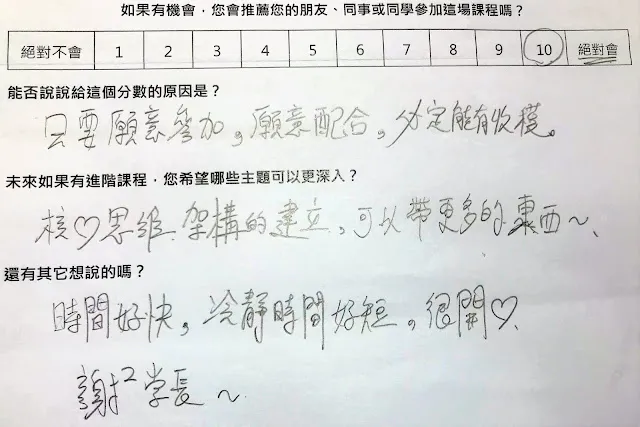 如果有機會，您會推薦您的朋友、同事或同學參加這場課程嗎？
絕對不會 1 2 3 4 5 6 7 8 9 10 絕對會
能否說說給這個分數的原因是？
只要願意參加，願意配合，必定能有收穫。
未來如果有進階課程，您希望哪些主題可以更深入？
核♡思維 架構的建立，可以帶更多的東西～、
還有其它想說的嗎？
時間好快，冷靜時間好短，很開♡、
謝²学長～